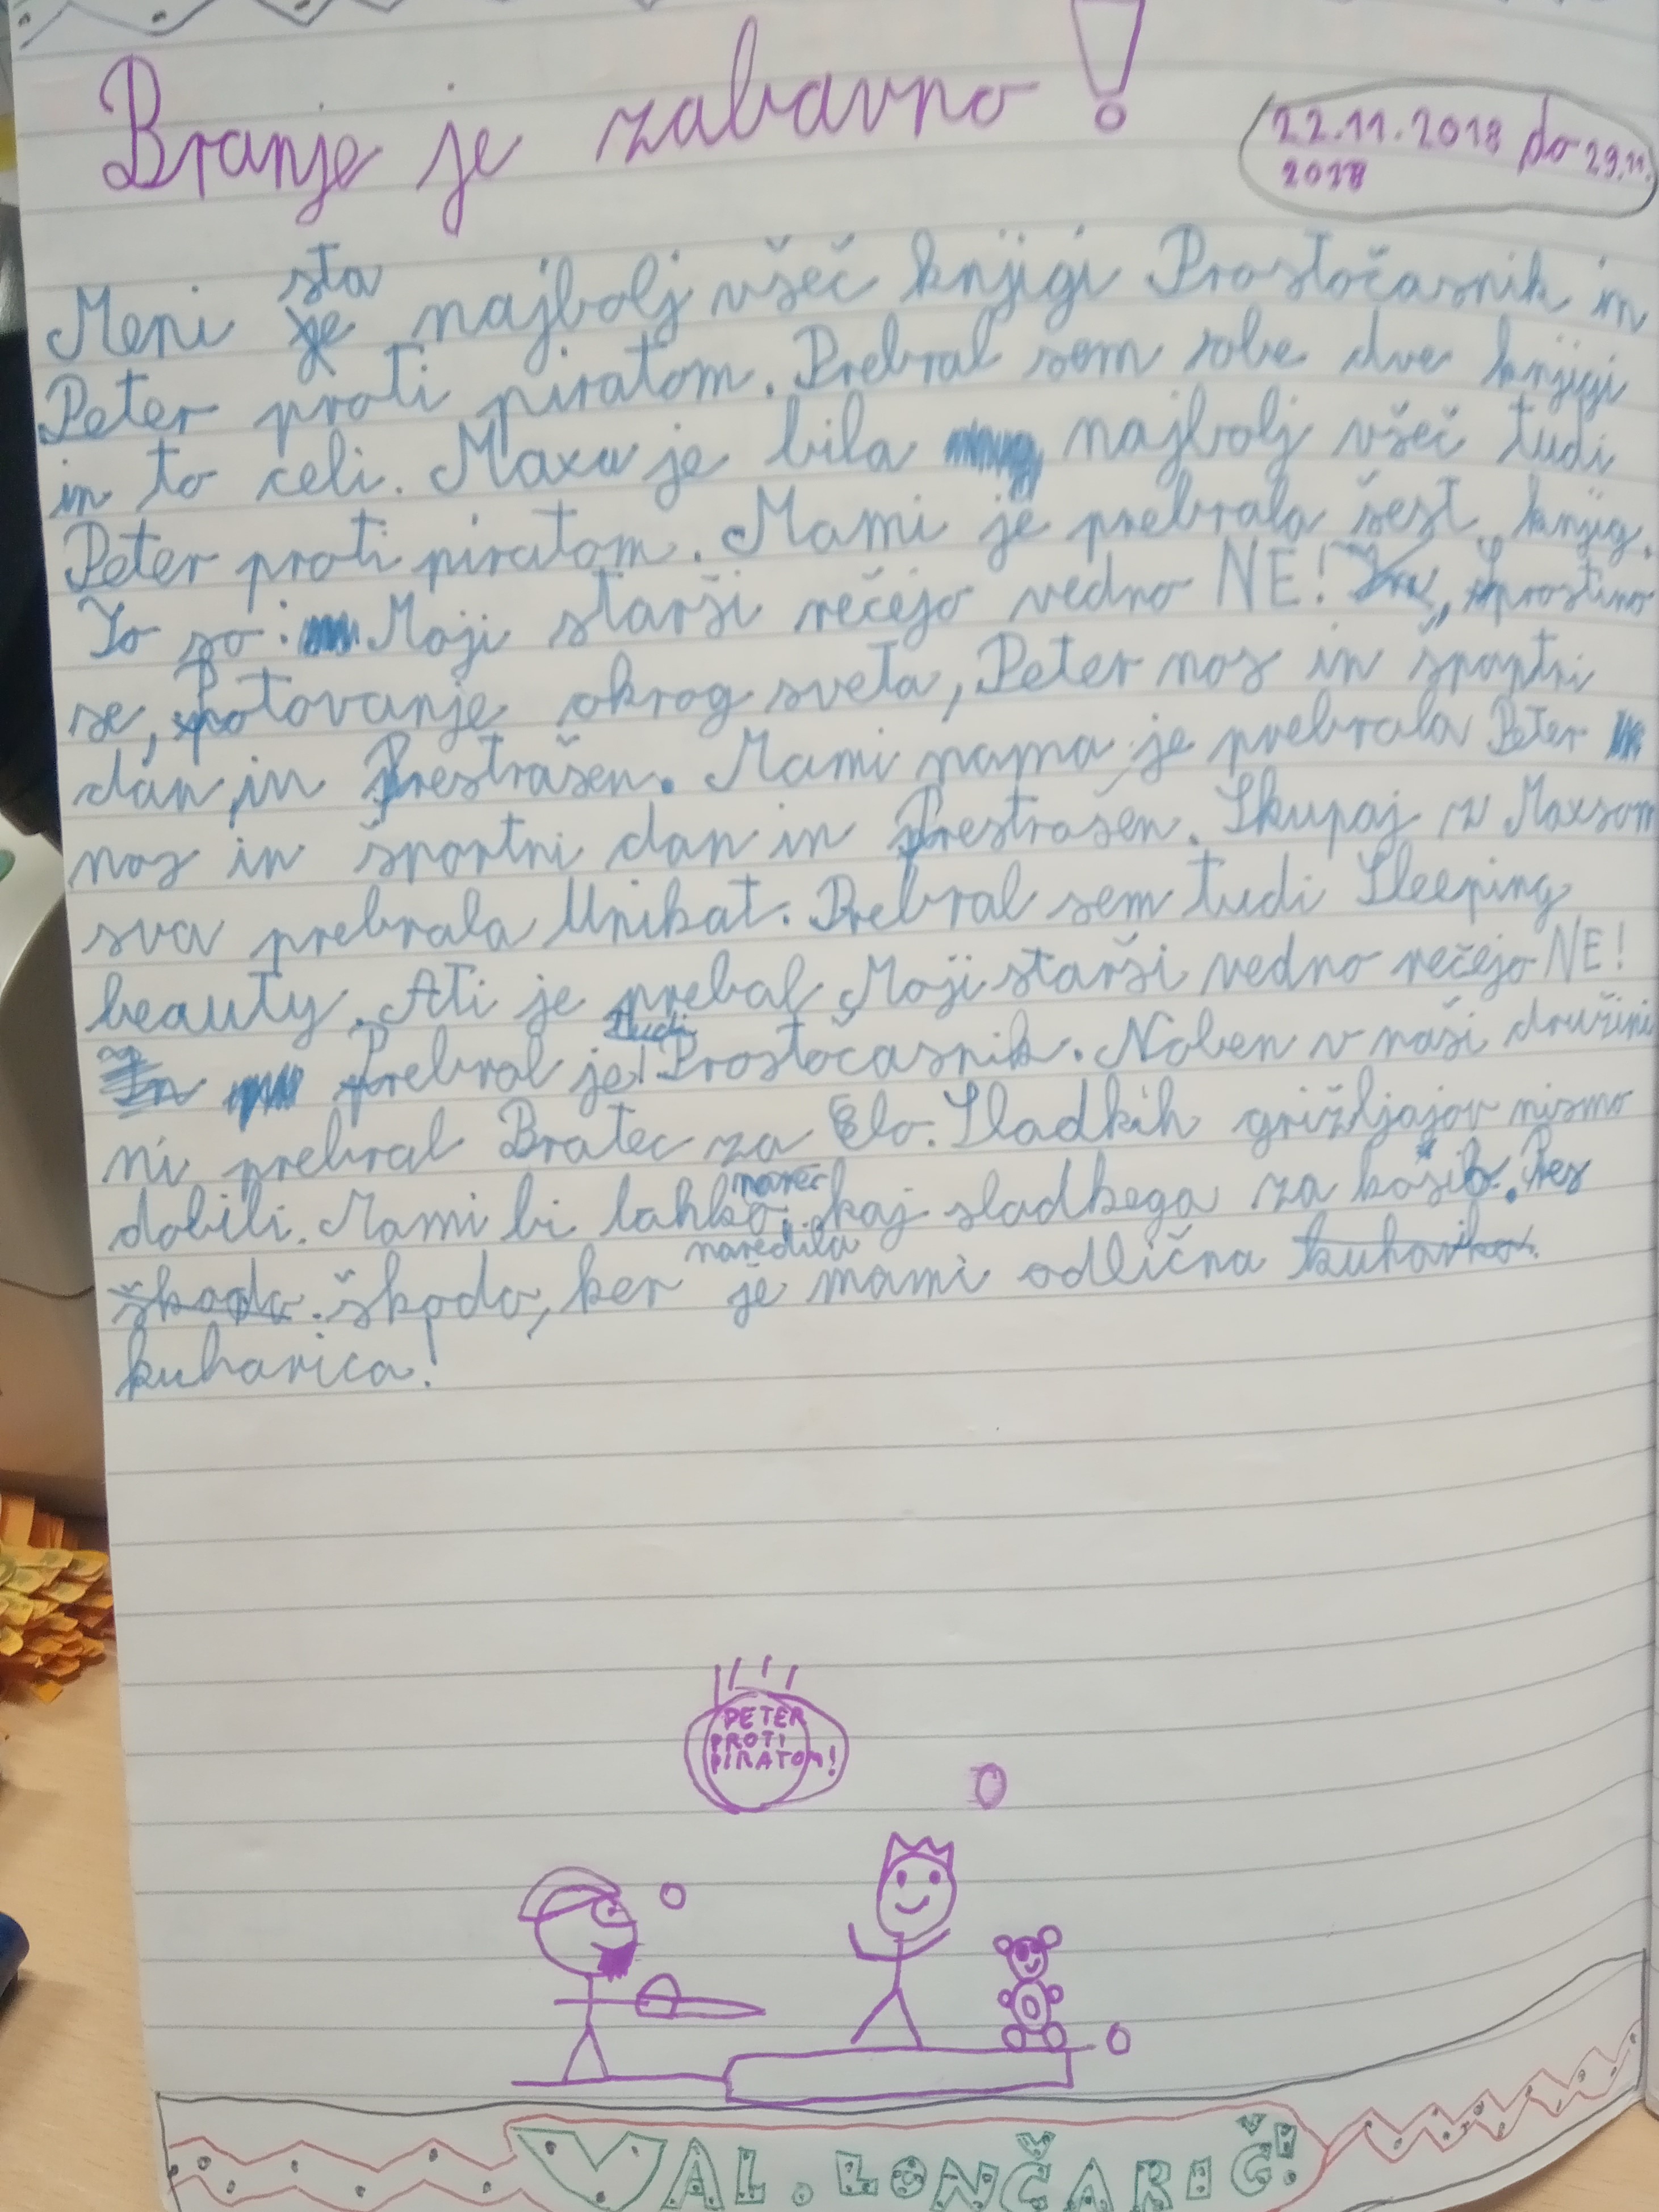 Branje je zabavno!
22.11.2018 do 29.11.
2018
sta
Meni je najbolj všeč knjigi Prostočasnik in
Peter proti piratom. Prebral sem sobe dve knjigi
in to celi. Maxu je bila najbolj všeč tudi
Peter proti piratom. Mami je prebrala šest knjig.
To so: Moji starši rečejo vedno NE!, Sprostimo
se, Potovanje okrog sveta, Peter nos in športni
dan, in Prestrašen. Mami nama je prebrala Peter
nos in športni dan in Prestrašen. Skupaj z Maxsom
sva prebrala Unikat. Prebral sem tudi Sleeping
beauty. Ati je prebal Moji starši vedno rečejo NE!
tudi
Prebral je Prostočasnik. Noben v naši družini
ni prebral Bratec za Elo. Sladkih grižljajov nismo
dobili. Mami bi lahko kaj sladkega za kosilo. Res
naredila
škoda. škoda, ker je mami odlična kuharka.
kuharica!
PETER
PROTI
PIRATOM!
VAL. LONČARIČ!